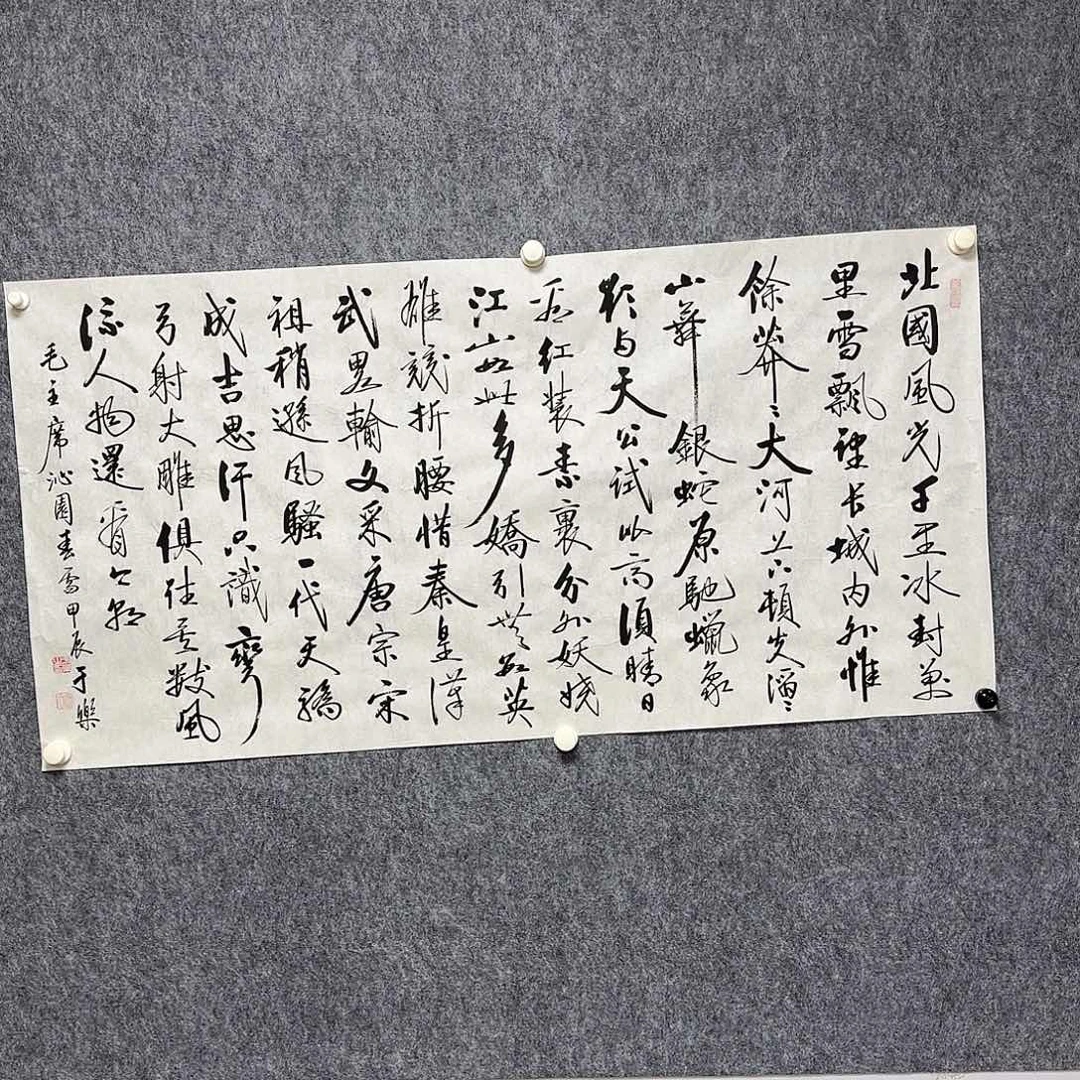 北國風光千里冰封萬
里雪飄望长城内外惟
餘莽〻大河上下頓失滔〻
山舞銀蛇原馳蠟象
欲与天公試比高須晴日
看红装素裹分外妖娆
江山如此多嬌引無数英
雄競折腰惜秦皇漢
武畧輸文采唐宗宋
祖稍遜风騷一代天驕
成吉思汗只識彎
弓射大雕俱往矣数風
流人物還看今朝
毛主席沁園春雪甲辰于樂